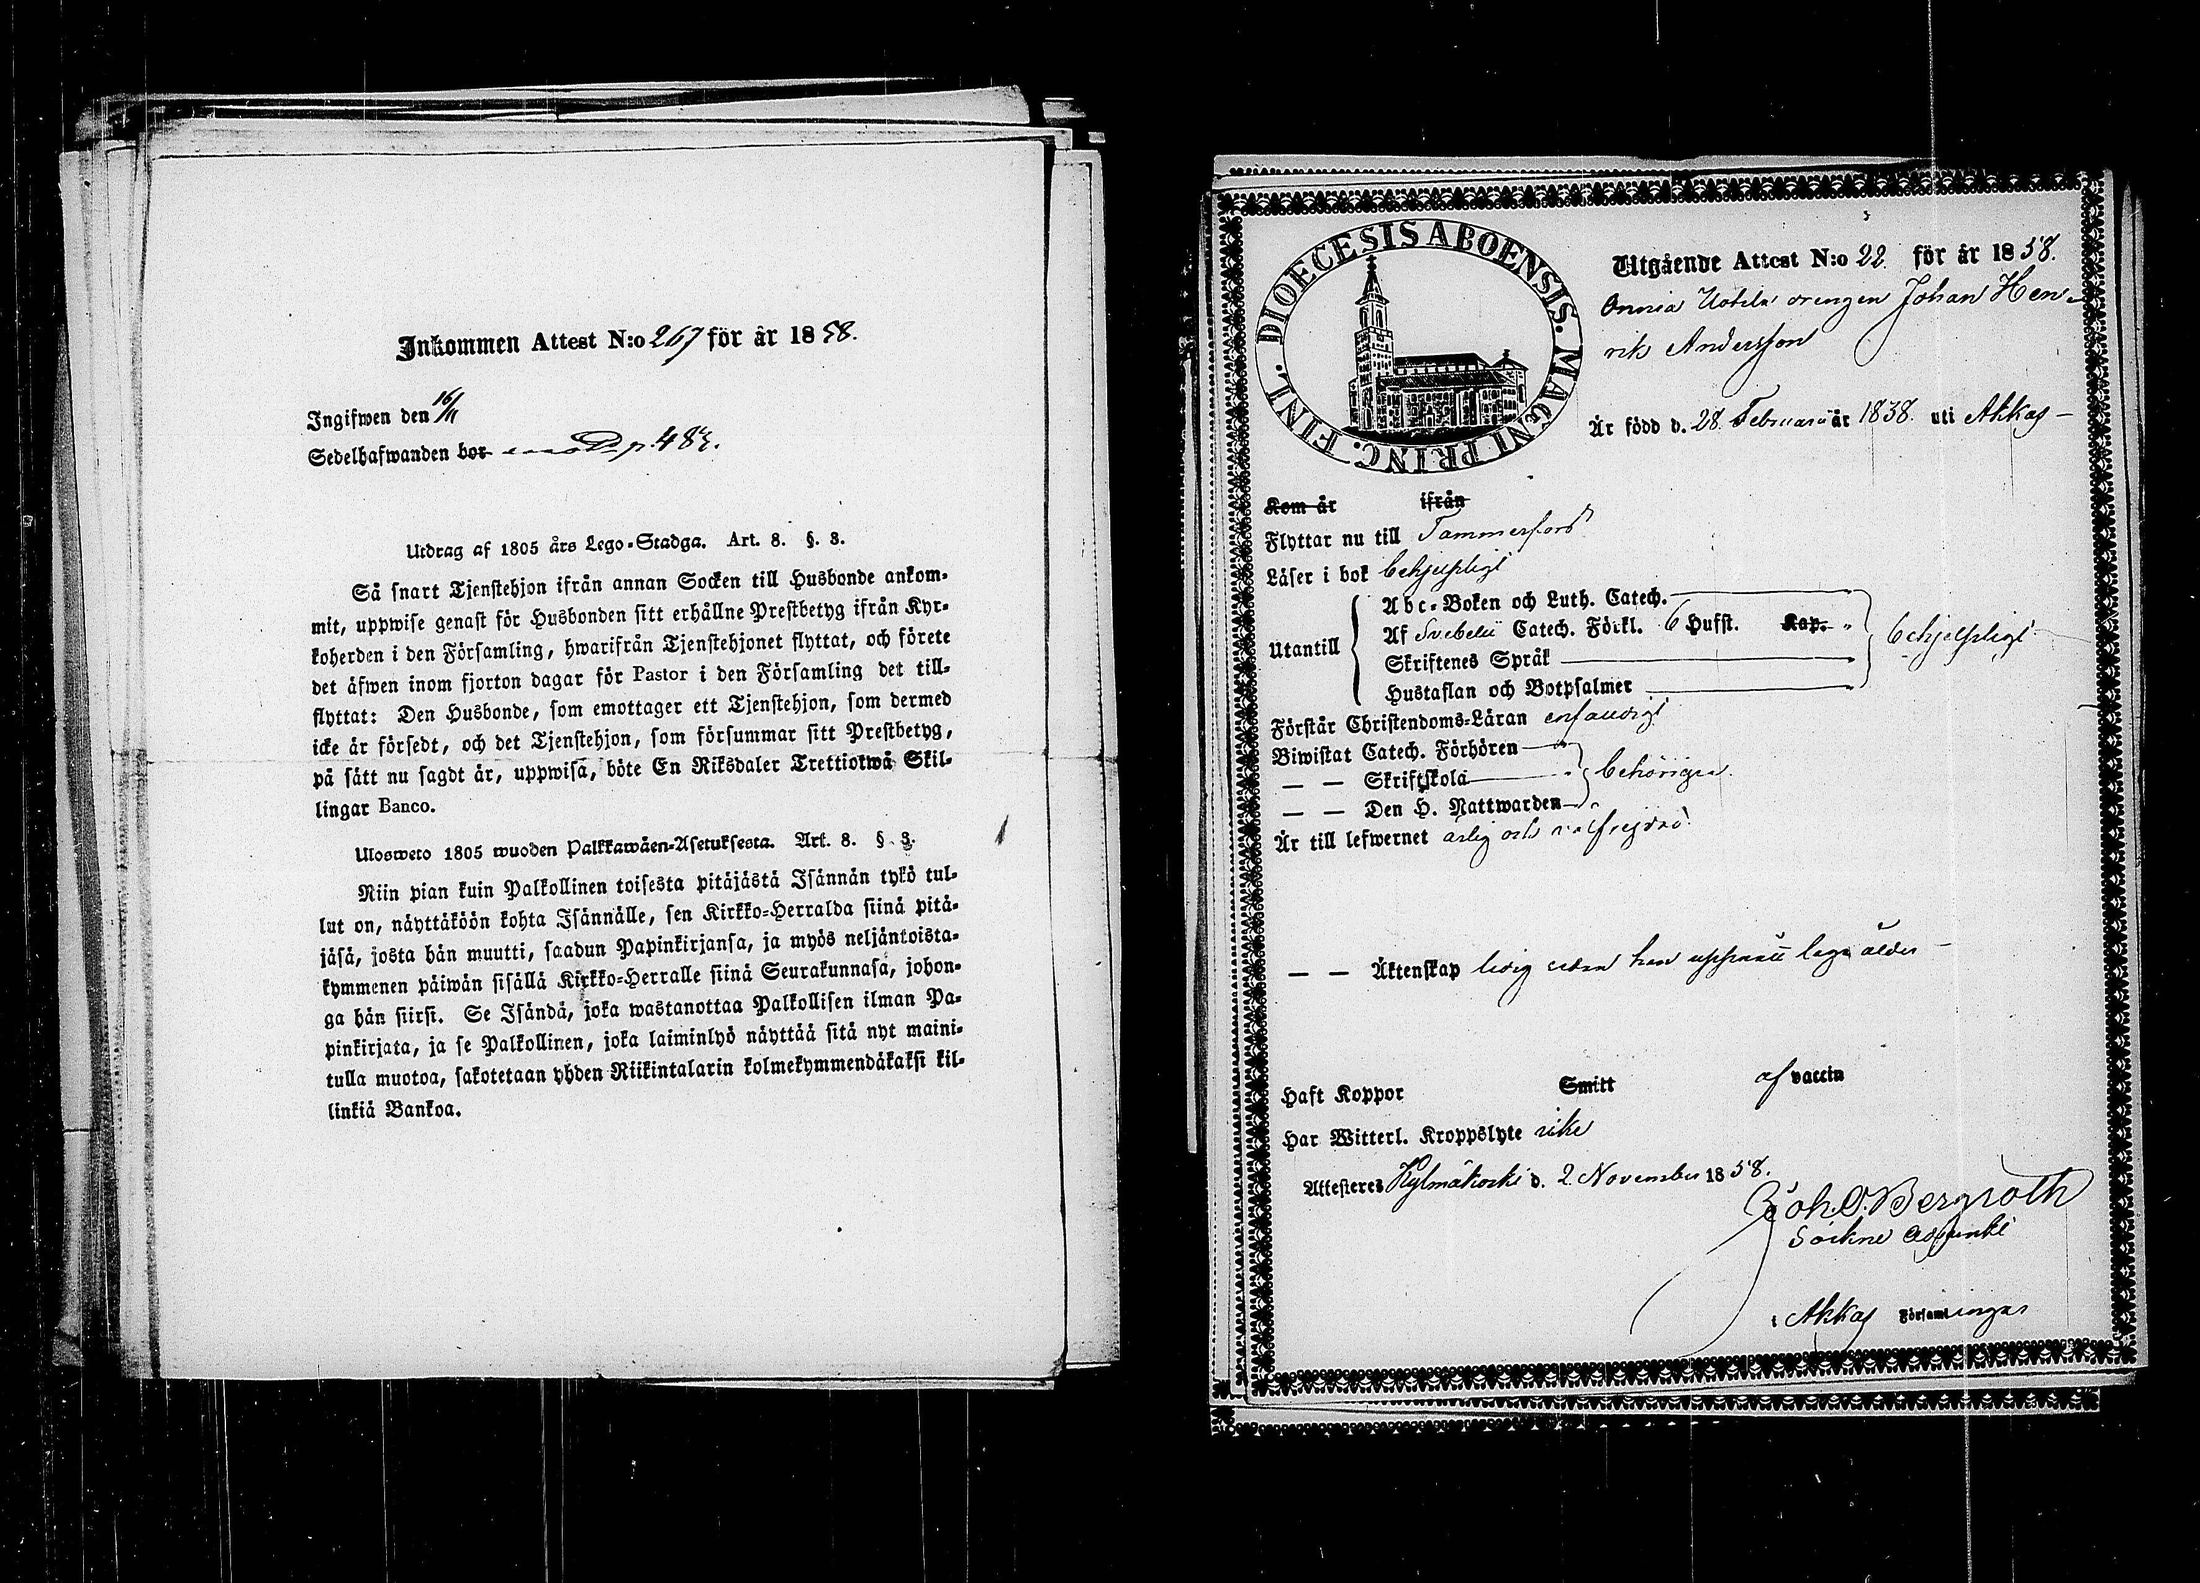 Inkommen Attest N:o 267 för år 1858.
Ingifwen den 16/11
Sedelhafwanden bor p. 483.
Utdrag af 1805 års Lego-Stadga. Art. 8. §. 3.
Så snart Tjenstehjon ifrån annan Socken till Husbonde ankom-
mit, uppwise genast för Husbonden sitt erhållne Prestbetyg ifrån Kyr-
koherden i den Församling, hwarifrån Tjenstehjonet flyttat, och förete
det äfwen inom fjorton dagar för Pastor i den Församling det till-
flyttat: Den Husbonde, som emottager ett Tjenstehjon, som dermed
icke är försedt, och det Tjenstehjon, som försummar sitt Prestbetyg,
på sätt nu sagdt är, uppwisa, böte En Riksdaler Trettiotwå Skil-
lingar Banco.
Ulosweto 1805 wuoden Palkkawäen-Asetuksesta. Art. 8. § 3.
Niin pian kuin Palkollinen toisesta pitäjästä Isännän tykö tul-
lut on, näyttäköön kohta Isännälle, sen Kirkko-Herralda siinä pitä-
jäsä, josta hän muutti, saadun Papinkirjansa, ja myös neljäntoista-
kymmenen päiwän sisällä Kirkko-Herralle siinä Seurakunnasa, johon-
ga hän siirsi. Se Isändä, joka wastanottaa Palkollisen ilman Pa-
pinkirjata, ja se Palkollinen, joka laiminlyö näyttää sitä nyt maini-
tulla muotoa, sakotetaan yhden Riikintalarin kolmekymmendäkaksi kil-
linkiä Bankoa.
DIOECESIS ABOENSIS. MAGNI PRINC. FINL.
Utgående Attest N:o 22 för år 1858.
Onnia Uotila drengen Johan Hen-
rik Andersson
Är född d. 28 Februarii år 1838. uti Akkas
Kom år ifrån
Flyttar nu till Tammerfors
Läser i bok behjelpligt
Utantill
Abc-Boken och Luth. Catech.
Af Svebelii Catech. Förkl. 6 Hufst. Kap.
Skriftenes Språk
Hustaflan och Botpsalmer
behjelpligt
Förstår Christendoms-Läran enfaldigt
Biwistat Catech. Förhören
— — Skriftskola
— — Den H. Nattwarden
behörigen
Är till lefwernet ärlig och välfrejdad
— — Äktenskap ledig sedan han uppnått laga ålder
Haft Koppor Smitt af vaccin
Har Witterl. Kroppslyte icke
Attesteres Kylmäkoski d. 2 November 1858.
Joh. O. Bergroth
Sockne adjunkt
i Akkas Församlingar